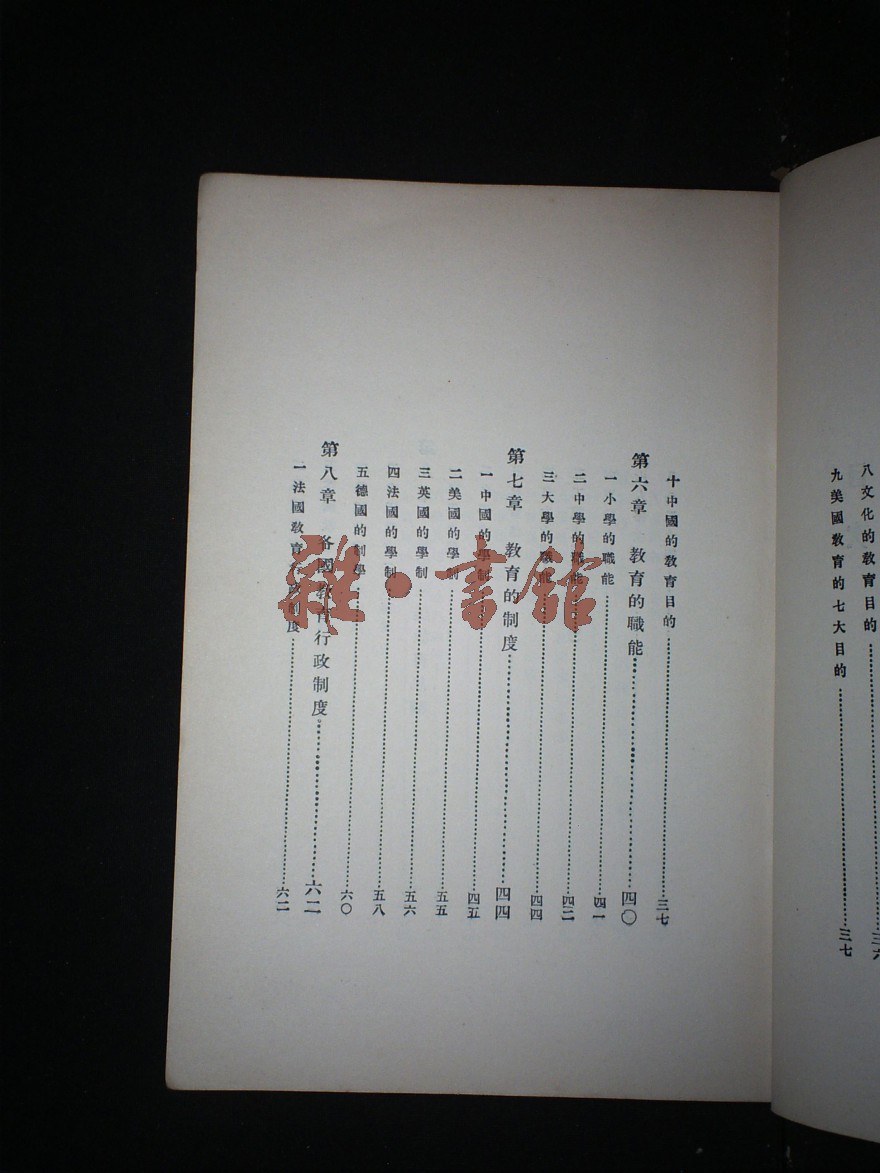 八 文化的教育目的……三六
九 美國教育的七大目的……三七
十 中國的教育目的……三七
第六章 教育的職能……四〇
一 小學的職能……四一
二 中學的職能……四二
三 大學的職能……四四
第七章 教育的制度……四四
一 中國的學制……四五
二 美國的學制……五五
三 英國的學制……五六
四 法國的學制……五八
五 德國的制學……六〇
第八章 各國教育行政制度……六二
一 法國教育行政制度……六二
雜·書館